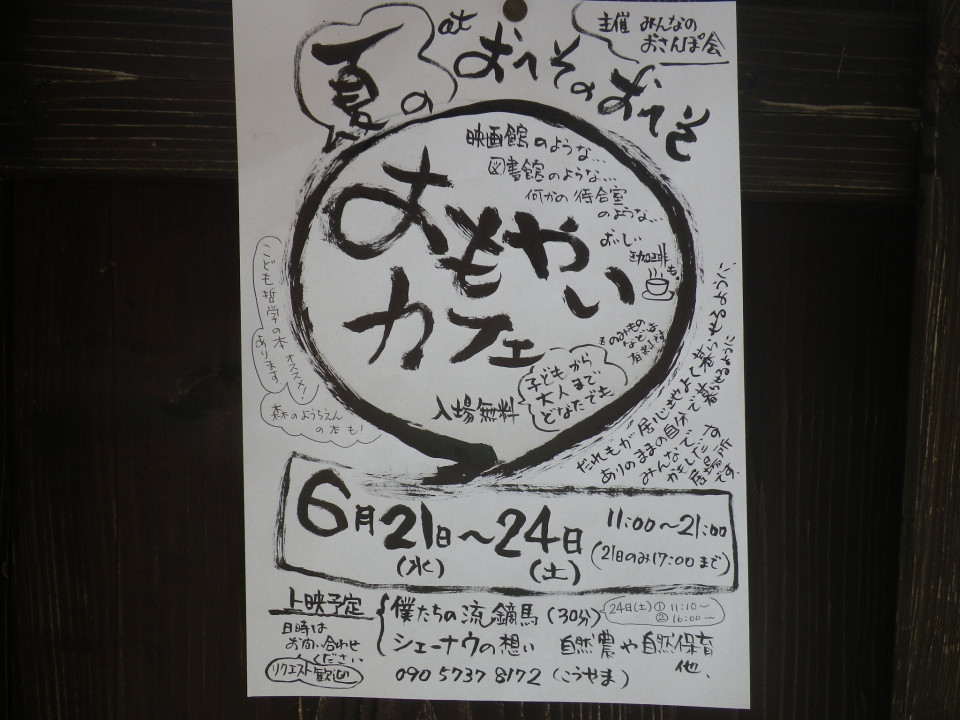 主催 みんなの
おさんぽ会
夏の
at おへそのおへそ
映画館のような…
図書館のような…
何かの待合室
のような…
おいしい
珈琲も。
およもやい
カフェ
※のみもの
などは
有料です
入場無料
子どもから
大人まで、
どなたでも
こども哲学の本 オススメ!
あります
森のようちえん
の本も!
だれもが居心地よく暮らせるように
ありのままの自分で暮らせるように
みんなで
6月21日〜24日
(水) (土)
11:00〜21:00
(21日のみ17:00まで)
上映予定
日時は
お問い合わせ
ください
リクエスト歓迎
僕たちの流鏑馬(30分)
24日(土)① 11:10〜
② 16:00〜
シェーナウの想い 自然農や自然保育
他、
090 5737 8172 (こうやま)